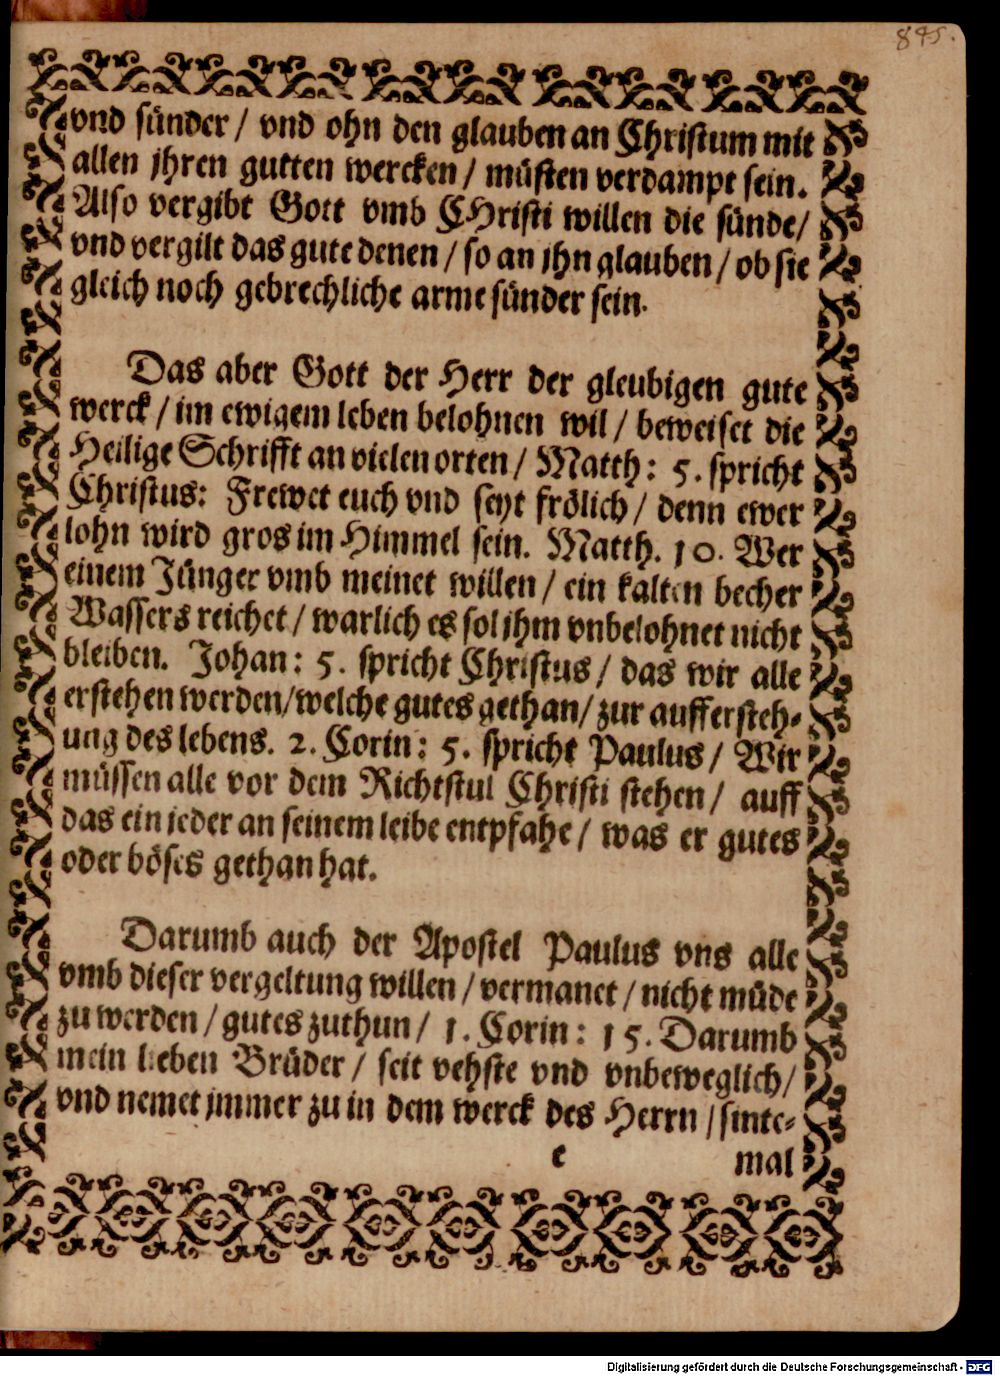 845.
vnd sünder / vnd ohn den glauben an Christum mit
allen jhren gutten wercken / müsten verdampt sein.
Also vergibt Gott vmb CHristi willen die sünde /
vnd vergilt das gute denen / so an jhn glauben / ob sie
gleich noch gebrechliche arme sünder sein.
Das aber Gott der Herr der gleubigen gute
werck / im ewigem leben belohnen wil / beweiset die
Heilige Schrifft an vielen orten / Matth: 5. spricht
Christus: Frewet euch vnd seyt frölich / denn ewer
lohn wird gros im Himmel sein. Matth. 10. Wer
einem Jünger vmb meinet willen / ein kalten becher
Wassers reichet / warlich es sol jhm vnbelohnet nicht
bleiben. Johan: 5. spricht Christus / das wir alle
erstehen werden / welche gutes gethan / zur aufferste​h-
ung des lebens. 2. Corin: 5. spricht Paulus / Wir
müssen alle vor dem Richtstul Christi stehen / auff
das ein jeder an seinem leibe entpfahe / was er gutes
oder böses gethan hat.
Darumb auch der Apostel Paulus vns alle
vmb dieser vergeltung willen / vermanet / nicht müde
zu werden / gutes zuthun / 1. Corin: 15. Darumb
mein lieben Brüder / seit vehste vnd vnbeweglich /
vnd nemet jmmer zu in dem werck des Herrn / sinte-
e mal
Digitalisierung gefördert durch die Deutsche Forschungsgemeinschaft - DFG